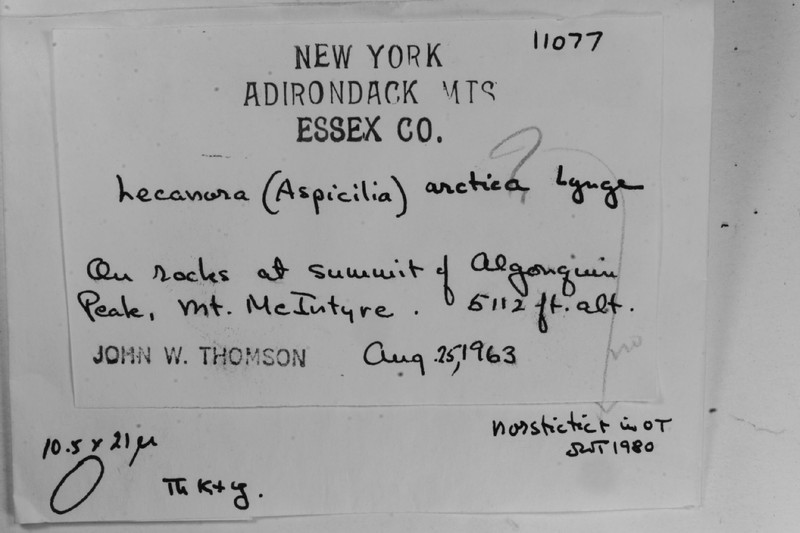 11077
NEW YORK
ADIRONDACK MTS
ESSEX CO.
?
Lecanora (Aspicilia) arctica Lynge
On rocks at summit of Algonquin
Peak, Mt. McIntyre. 5112 ft. alt.
JOHN W. THOMSON Aug. 25, 1963
no
norstictic + in OT
JWT 1980
10.5 x 21 µ
Th K+y.